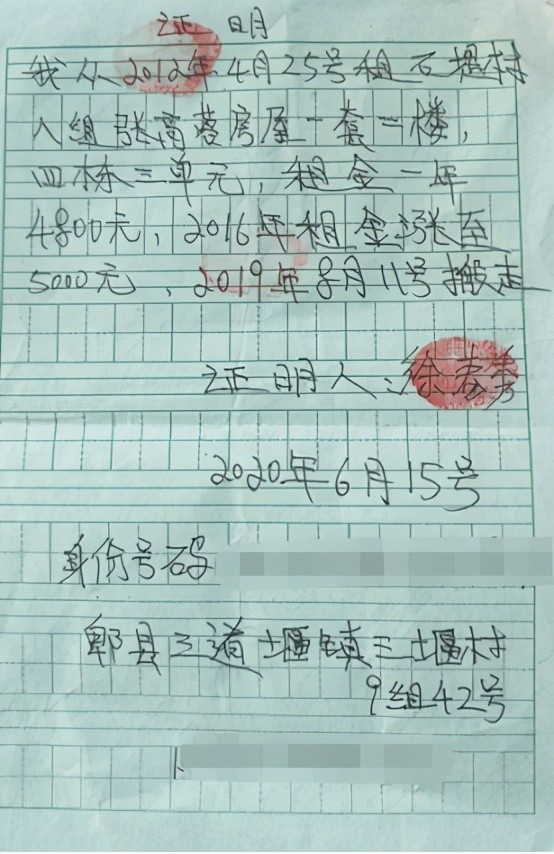 证 明
我从2012年4月25号租石堤村
八组张高蓉房屋一套二楼，
四栋三单元，租金一年
4800元，2016年租金涨至
5000元，2019年8月11号搬走
证明人：徐
2020年6月15号
身份号码
郫县三道堰镇三堰村
9组42号